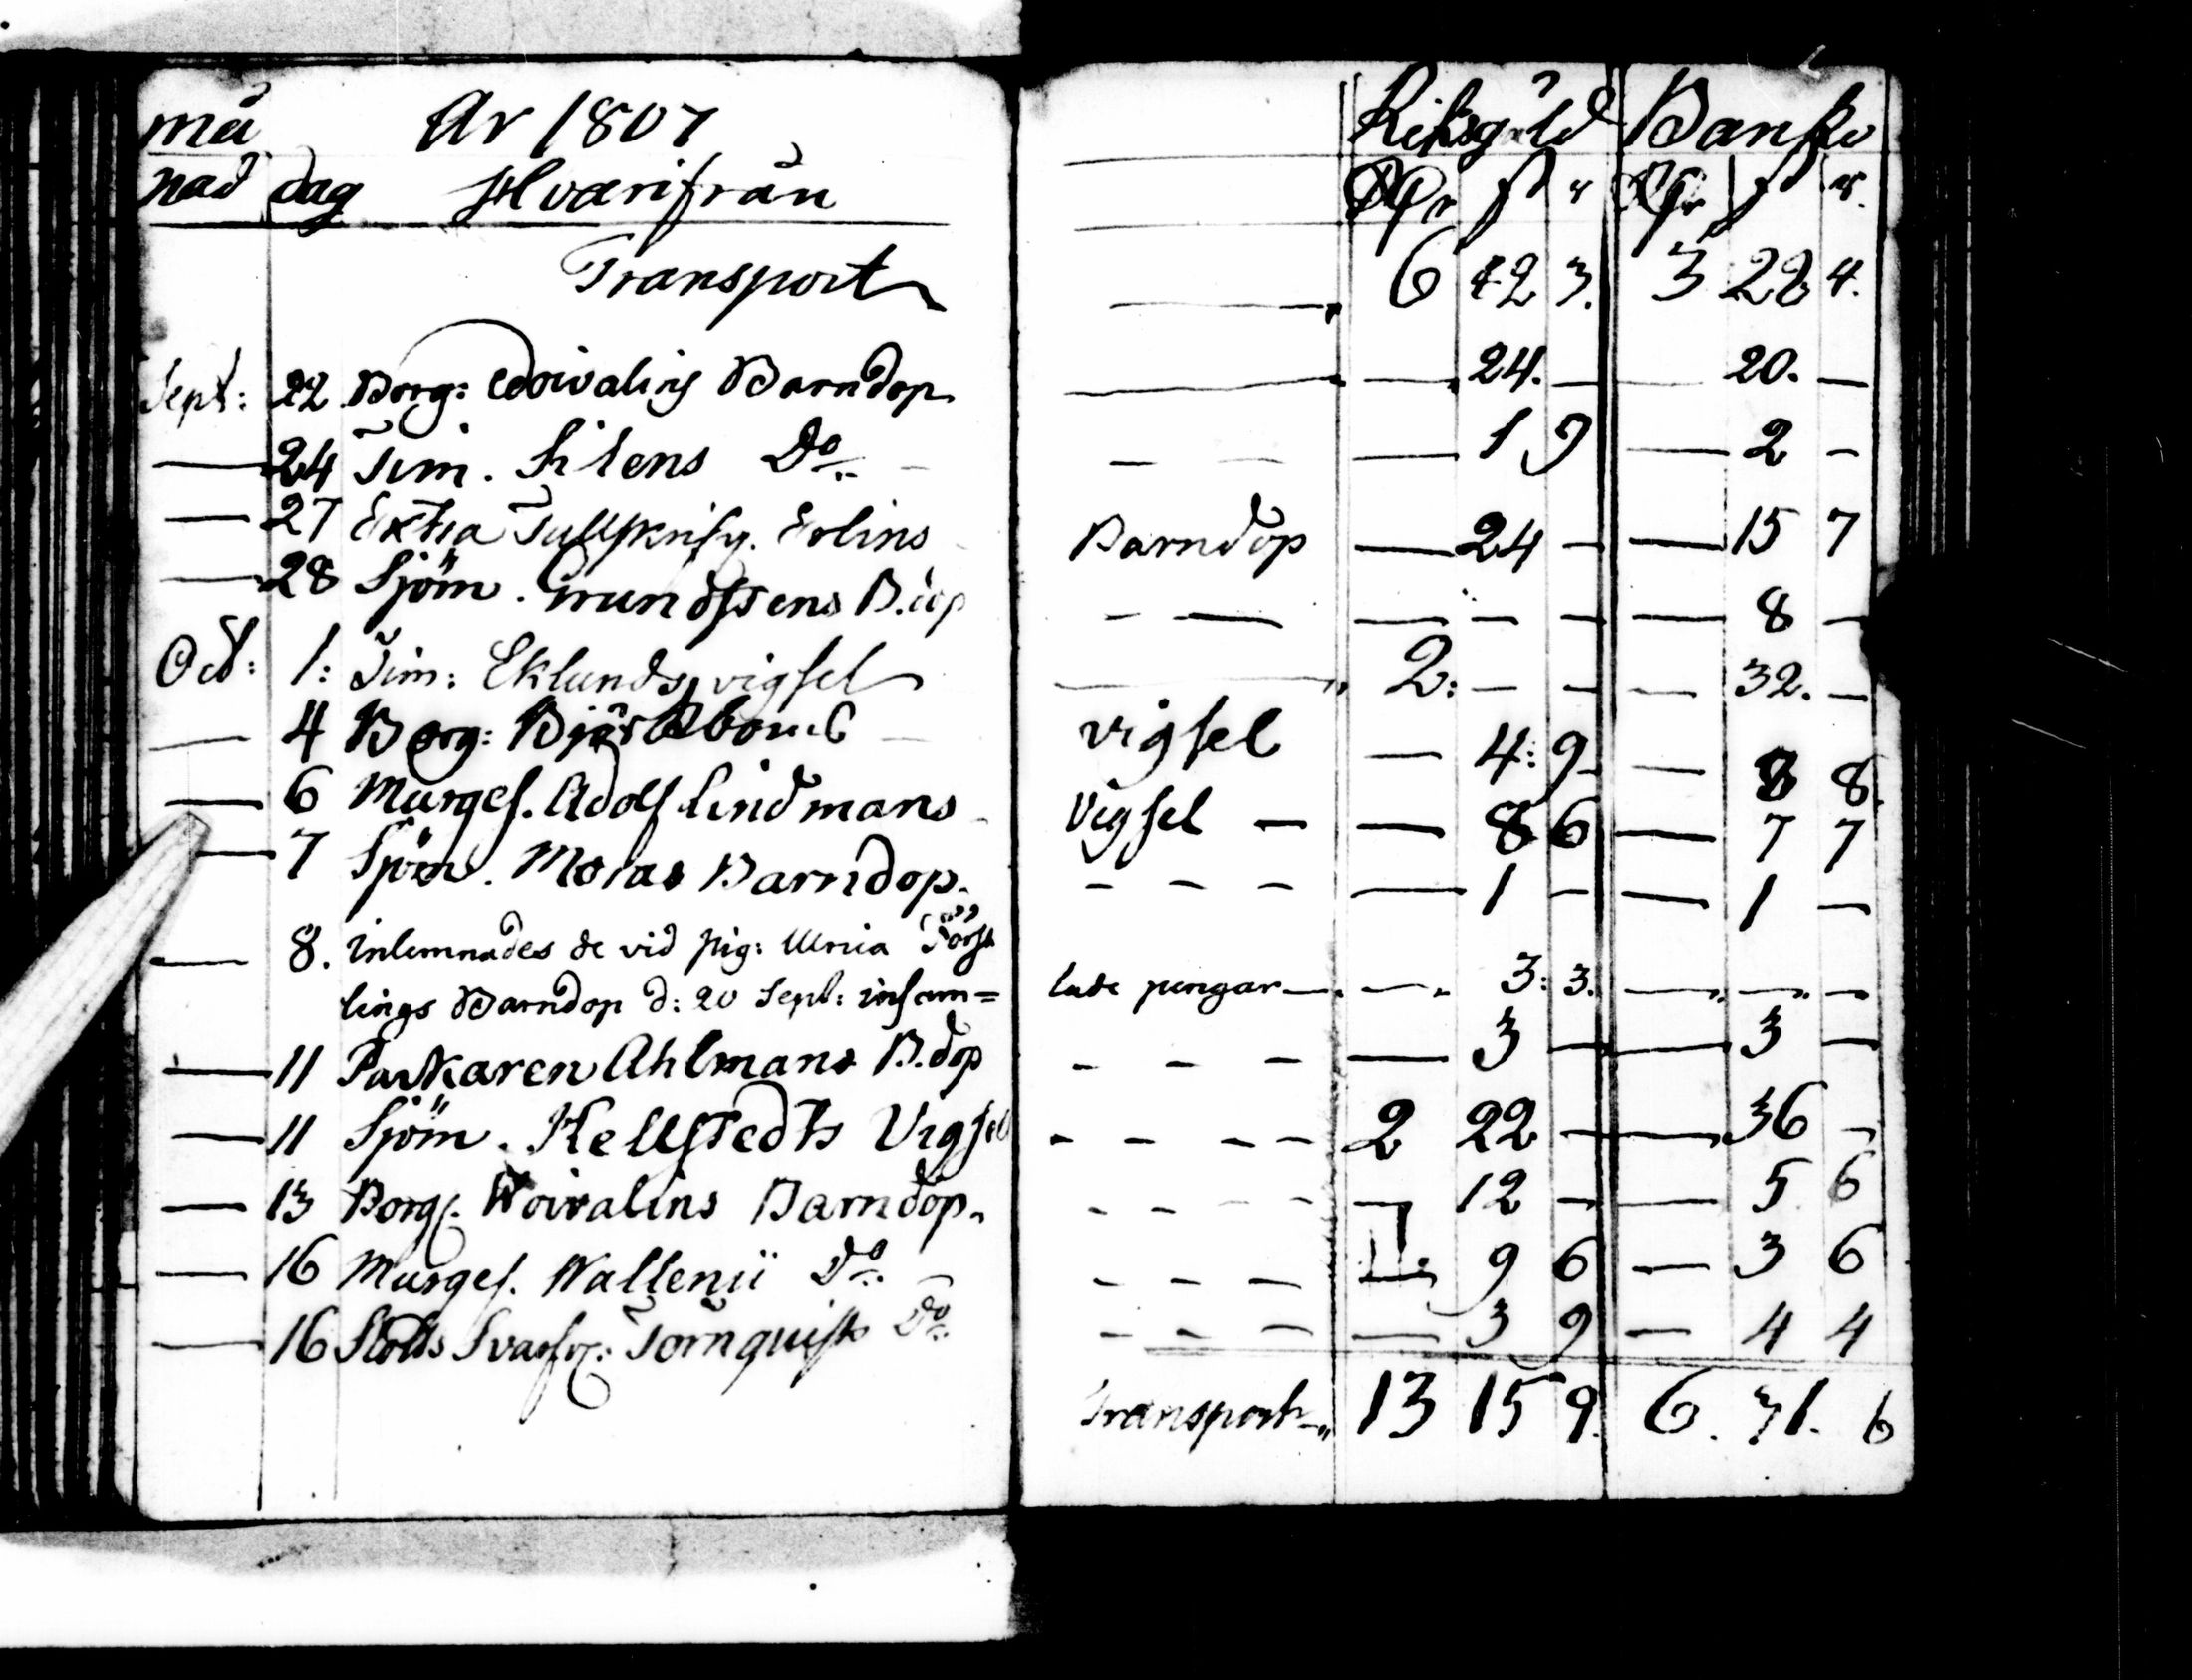 må År 1807 Riksgäld Banko
nad dag Hvarifrån Rdr ß r Rdr ß r.
Transport 6 42 3. 3 28 4.
Sept: 22 Borg: Barndop 24. — 20. —
— 24 Tim. Silens Do — 1 9 — 2 —
— 27 Extra Erlins Barndop — 24 — — 15 7
— 28 Sjöm. Grundssens B.dop — — — — 8 —
Oct: 1: Tim: Eklunds vigsel 2: — — — 32. —
— 4 Borg: Björkboms vigsel — 4: 9 — 8 8
— 6 Murges. Adolf Lindmans Vigsel — — 8 6 — 7 7
— 7 Sjöm. Moras Barndop. — 1 — — 1 —
— 8. inlemnades de vid pig: Ulrica Först
lings Barndop d: 20 Sept: insam= lade pengar — — 3: 3. — — —
— 11 Packaren Ahlmans B.dop — 3 — — 3 —
— 11 Sjöm. Kellstedts Vigsel 2 22 — — 36 —
— 13 Borg. Woivalins Barndop. — 12 — — 5 6
— 16 Murges. Wallenii Do 9 6 — 3 6
— 16 Törnquists Do — 3 9 — 4 4
Transport 13 15 9. 6. 31. 6